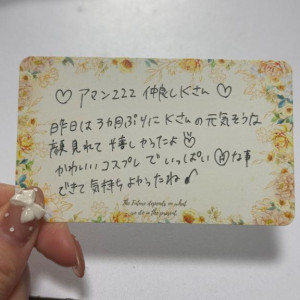 ♡ アマン222 仲良しKさん ♡
昨日は3カ月ぶりにKさんの元気そうな
顔見れて嬉しかったよ
かわいいコスプレでいっぱい な事
できて気持ちよかったね
The Future depends on what
we do in the present.